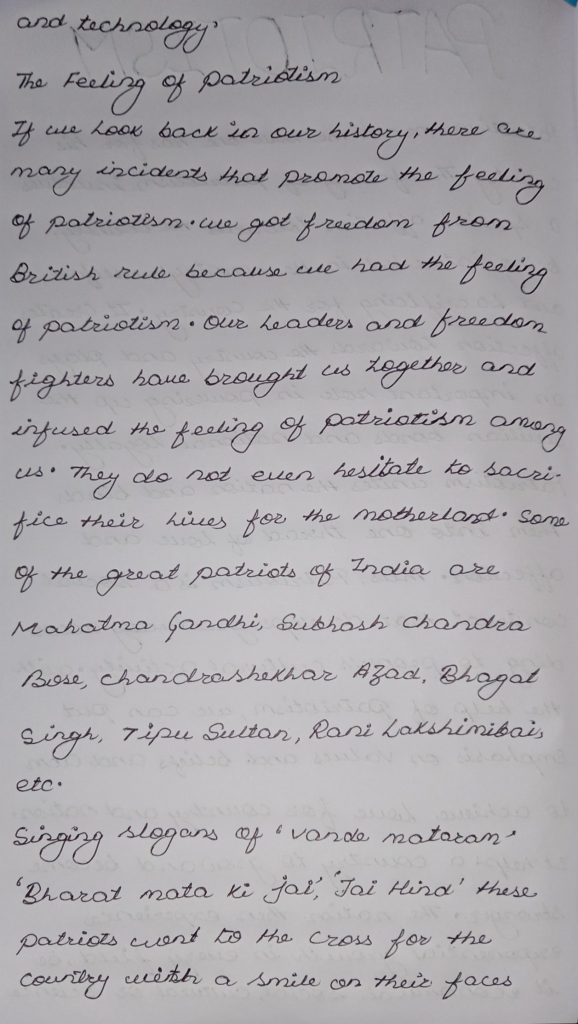 and technology.
The Feeling of patriotism
If we look back in our history, there are
many incidents that promote the feeling
of patriotism. we got freedom from
British rule because we had the feeling
of patriotism. Our leaders and freedom
fighters have brought us together and
infused the feeling of patriotism among
us. They do not even hesitate to sacri-
fice their lives for the motherland. Some
of the great patriots of India are
Mahatma Gandhi, Subhash Chandra
Bose, Chandrashekhar Azad, Bhagat
Singh, Tipu Sultan, Rani Lakshimibai,
etc.
Singing slogans of 'vande mataram'
'Bharat mata ki jai', 'Jai Hind' these
patriots went to the cross for the
country with a smile on their faces